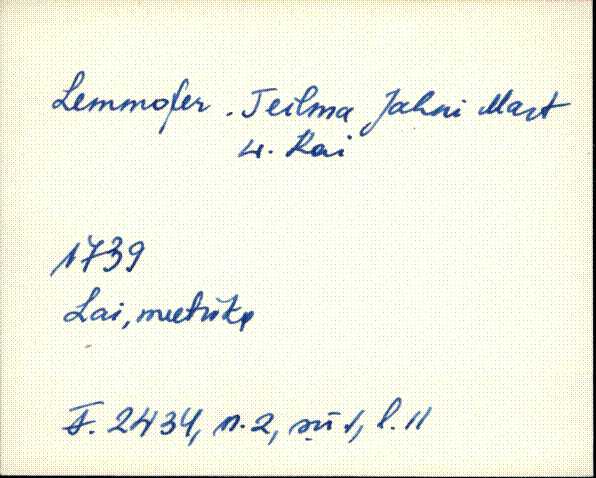 Lemmofer. Teilma Jahni Mart
w. Kai
1739
Lai, meetrika
F. 2434, n. 2, sü 1, l. 11